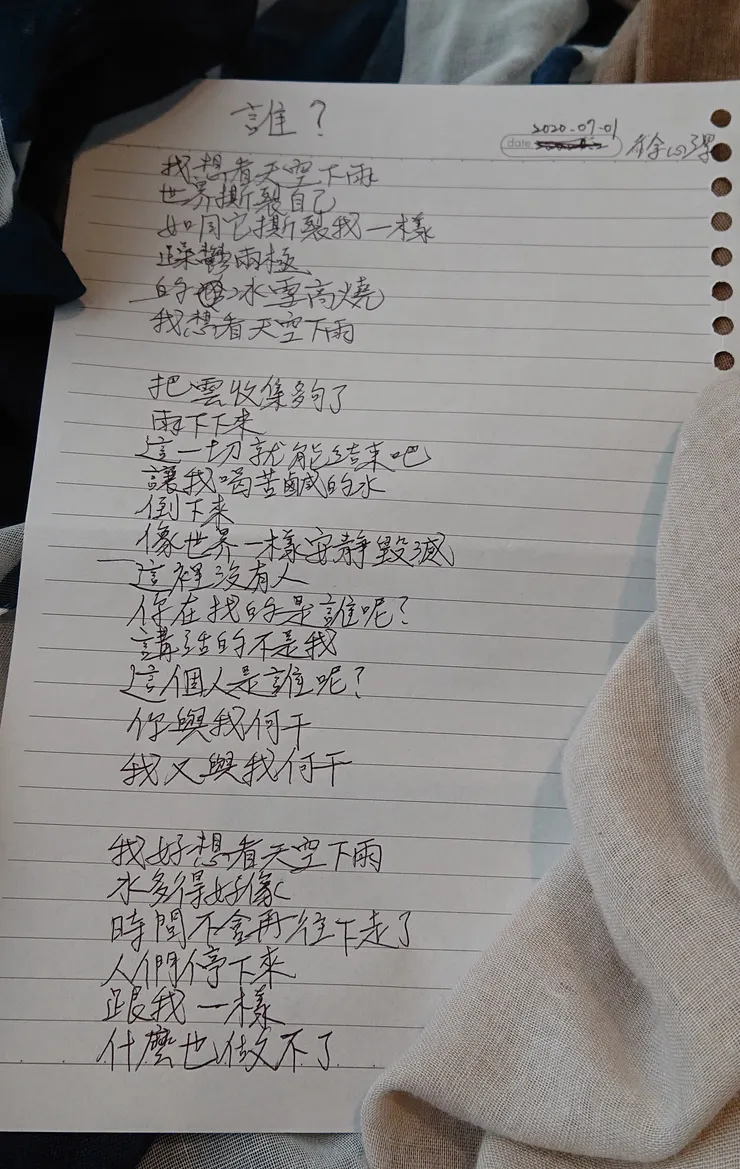 誰？
date 2020.07.01 徐
我想看天空下雨
世界撕裂自己
如同它撕裂我一樣
躁鬱兩極
的 冰雪高燒
我想看天空下雨
把雲收集夠了
雨下下來
這一切就能結束吧
讓我喝苦鹹的水
倒下來
像世界一樣安靜毀滅
這裡沒有人
你在找的是誰呢？
講話的不是我
這個人是誰呢？
你與我何干
我又與我何干
我好想看天空下雨
水多得好像
時間不會再往下走了
人們停下來
跟我一樣
什麼也做不了